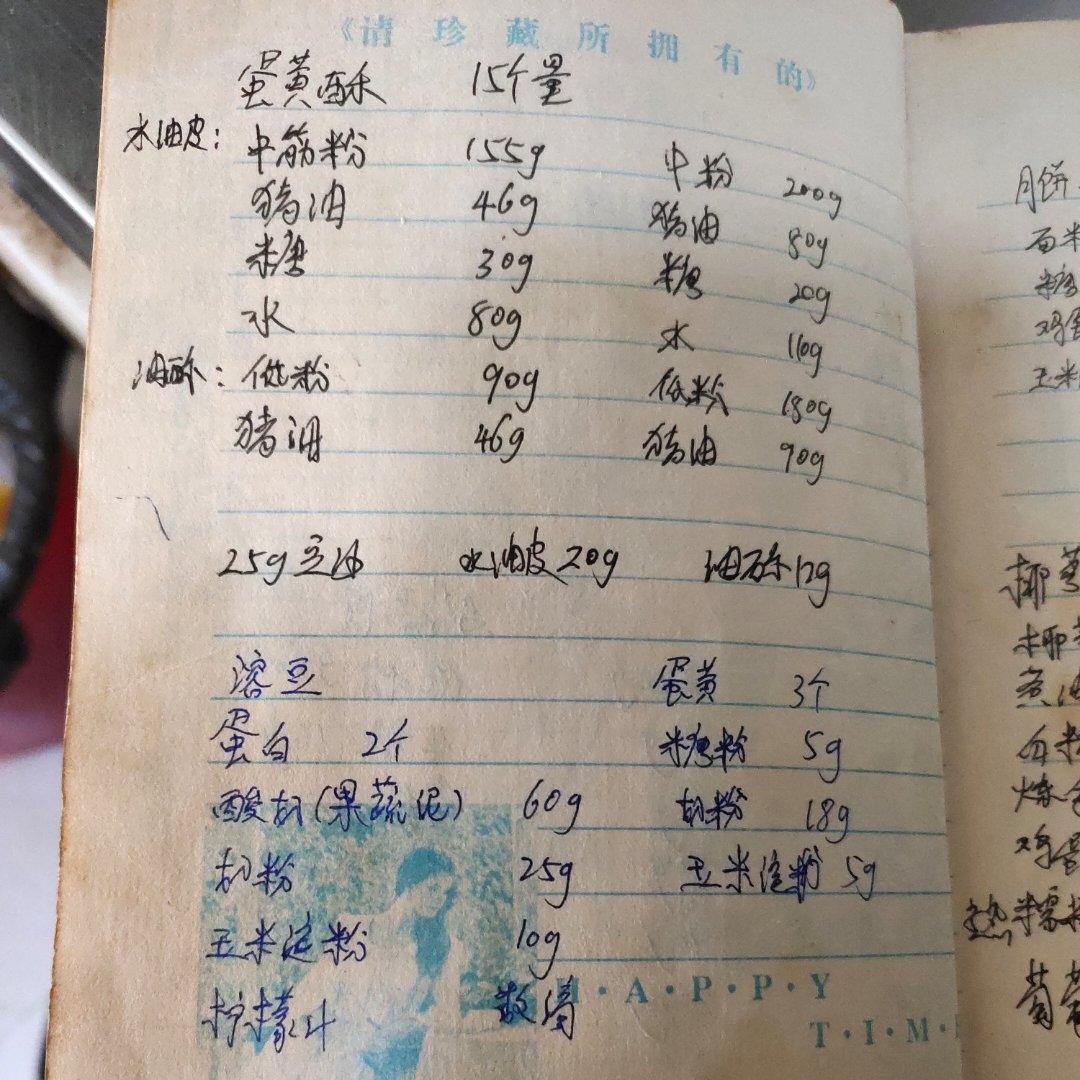 《请珍藏所拥有的》
蛋黄酥 15个量
水油皮： 中筋粉 155g 中粉 200g
猪油 46g 猪油 80g
糖 30g 糖 20g
水 80g 水 110g
油酥： 低粉 90g 低粉 180g
猪油 46g 猪油 90g
25g豆沙 水油皮20g 油酥12g
溶豆 蛋黄 3个
蛋白 2个 糖粉 5g
酸奶(果蔬泥) 60g 奶粉 18g
奶粉 25g 玉米淀粉 5g
玉米淀粉 10g
柠檬汁 数滴
H·A·P·P·Y
T·I·M·
月饼
糖
鸡蛋
玉米
椰
椰
黄油
鸡蛋
熟糯
葡萄